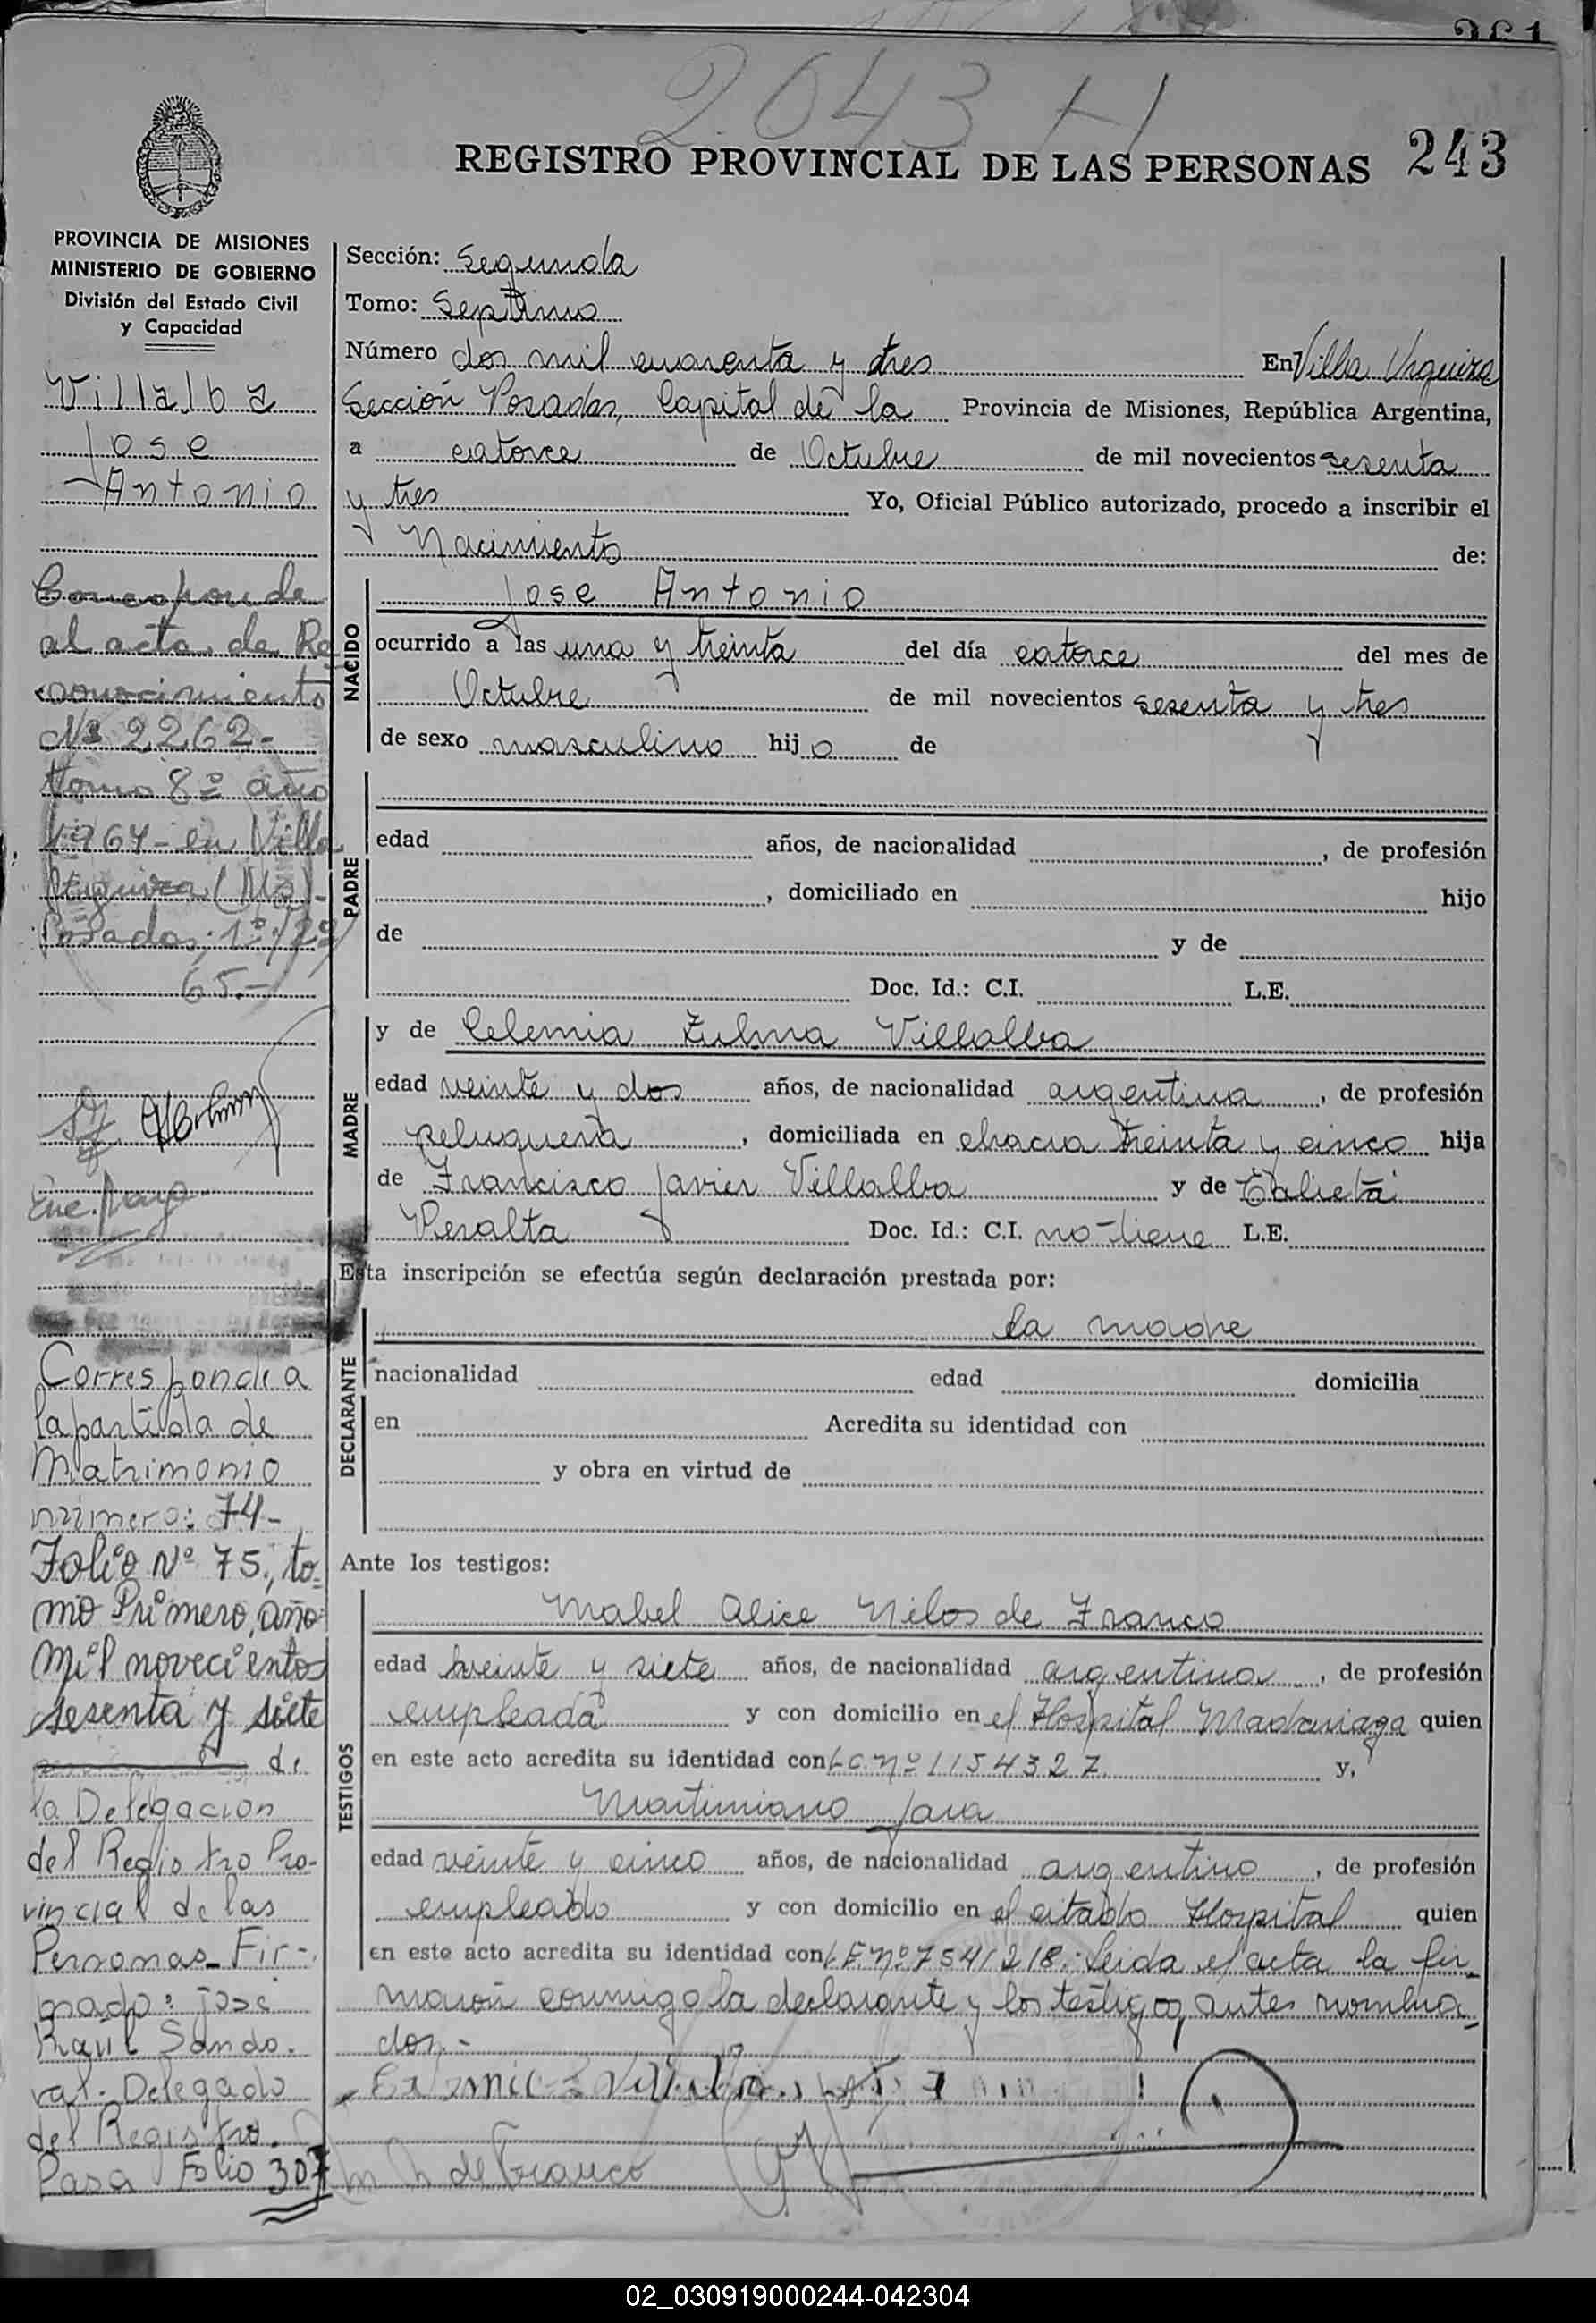 2043 H
REGISTRO PROVINCIAL DE LAS PERSONAS 243
PROVINCIA DE MISIONES
MINISTERIO DE GOBIERNO
División del Estado Civil
y Capacidad
Villalba
Jose
Antonio
Corresponde
al acta de Re
conocimiento
Nº 2262-
tomo 8º año
1964 - en Villa
Urquiza (Ms)-
Posadas, 1º/2º/
65.-
Enc.
Corresponde a
la partida de
Matrimonio
número: 74-
Folio Nº 75, to-
mo Primero, año
mil novecientos
sesenta y siete
de
la Delegacion
del Registro Pro-
vincial de las
Personas_ Fir-
mado: José
Raúl Sando-
val. Delegado
del Registro.
Pasa Folio 307
Sección: Segunda
Tomo: Septimo
Número dos mil cuarenta y tres En Villa Urquiza
Sección Posadas, Capital de la Provincia de Misiones, República Argentina,
a catorce de Octubre de mil novecientos sesenta
y tres Yo, Oficial Público autorizado, procedo a inscribir el
Nacimiento de:
NACIDO
Jose Antonio
ocurrido a las una y treinta del día catorce del mes de
Octubre de mil novecientos sesenta y tres
de sexo masculino hijo de
PADRE
edad años, de nacionalidad , de profesión
, domiciliado en hijo
de y de
Doc. Id.: C.I. L.E.
MADRE
y de Celemia Zulma Villalba
edad veinte y dos años, de nacionalidad argentina, de profesión
peluquera, domiciliada en chacra treinta y cinco hija
de Francisco Javier Villalba y de
Peralta Doc. Id.: C.I. no tiene L.E.
Esta inscripción se efectúa según declaración prestada por:
DECLARANTE
la madre
nacionalidad edad domicilia
en Acredita su identidad con
y obra en virtud de
Ante los testigos:
TESTIGOS
Mabel Alice Nilos de Franco
edad treinte y siete años, de nacionalidad argentina, de profesión
empleada y con domicilio en el Hospital Madariaga quien
en este acto acredita su identidad con L.C. nº 1154327 y,
Martiniano Jara
edad veinte y cinco años, de nacionalidad argentino, de profesión
empleado y con domicilio en el citado Hospital quien
en este acto acredita su identidad con L.E. nº 7541218. Leida el acta la fir_
maron conmigo la declarante y los testigos, antes nombra_
dos.-
de Franco
02_030919000244-042304